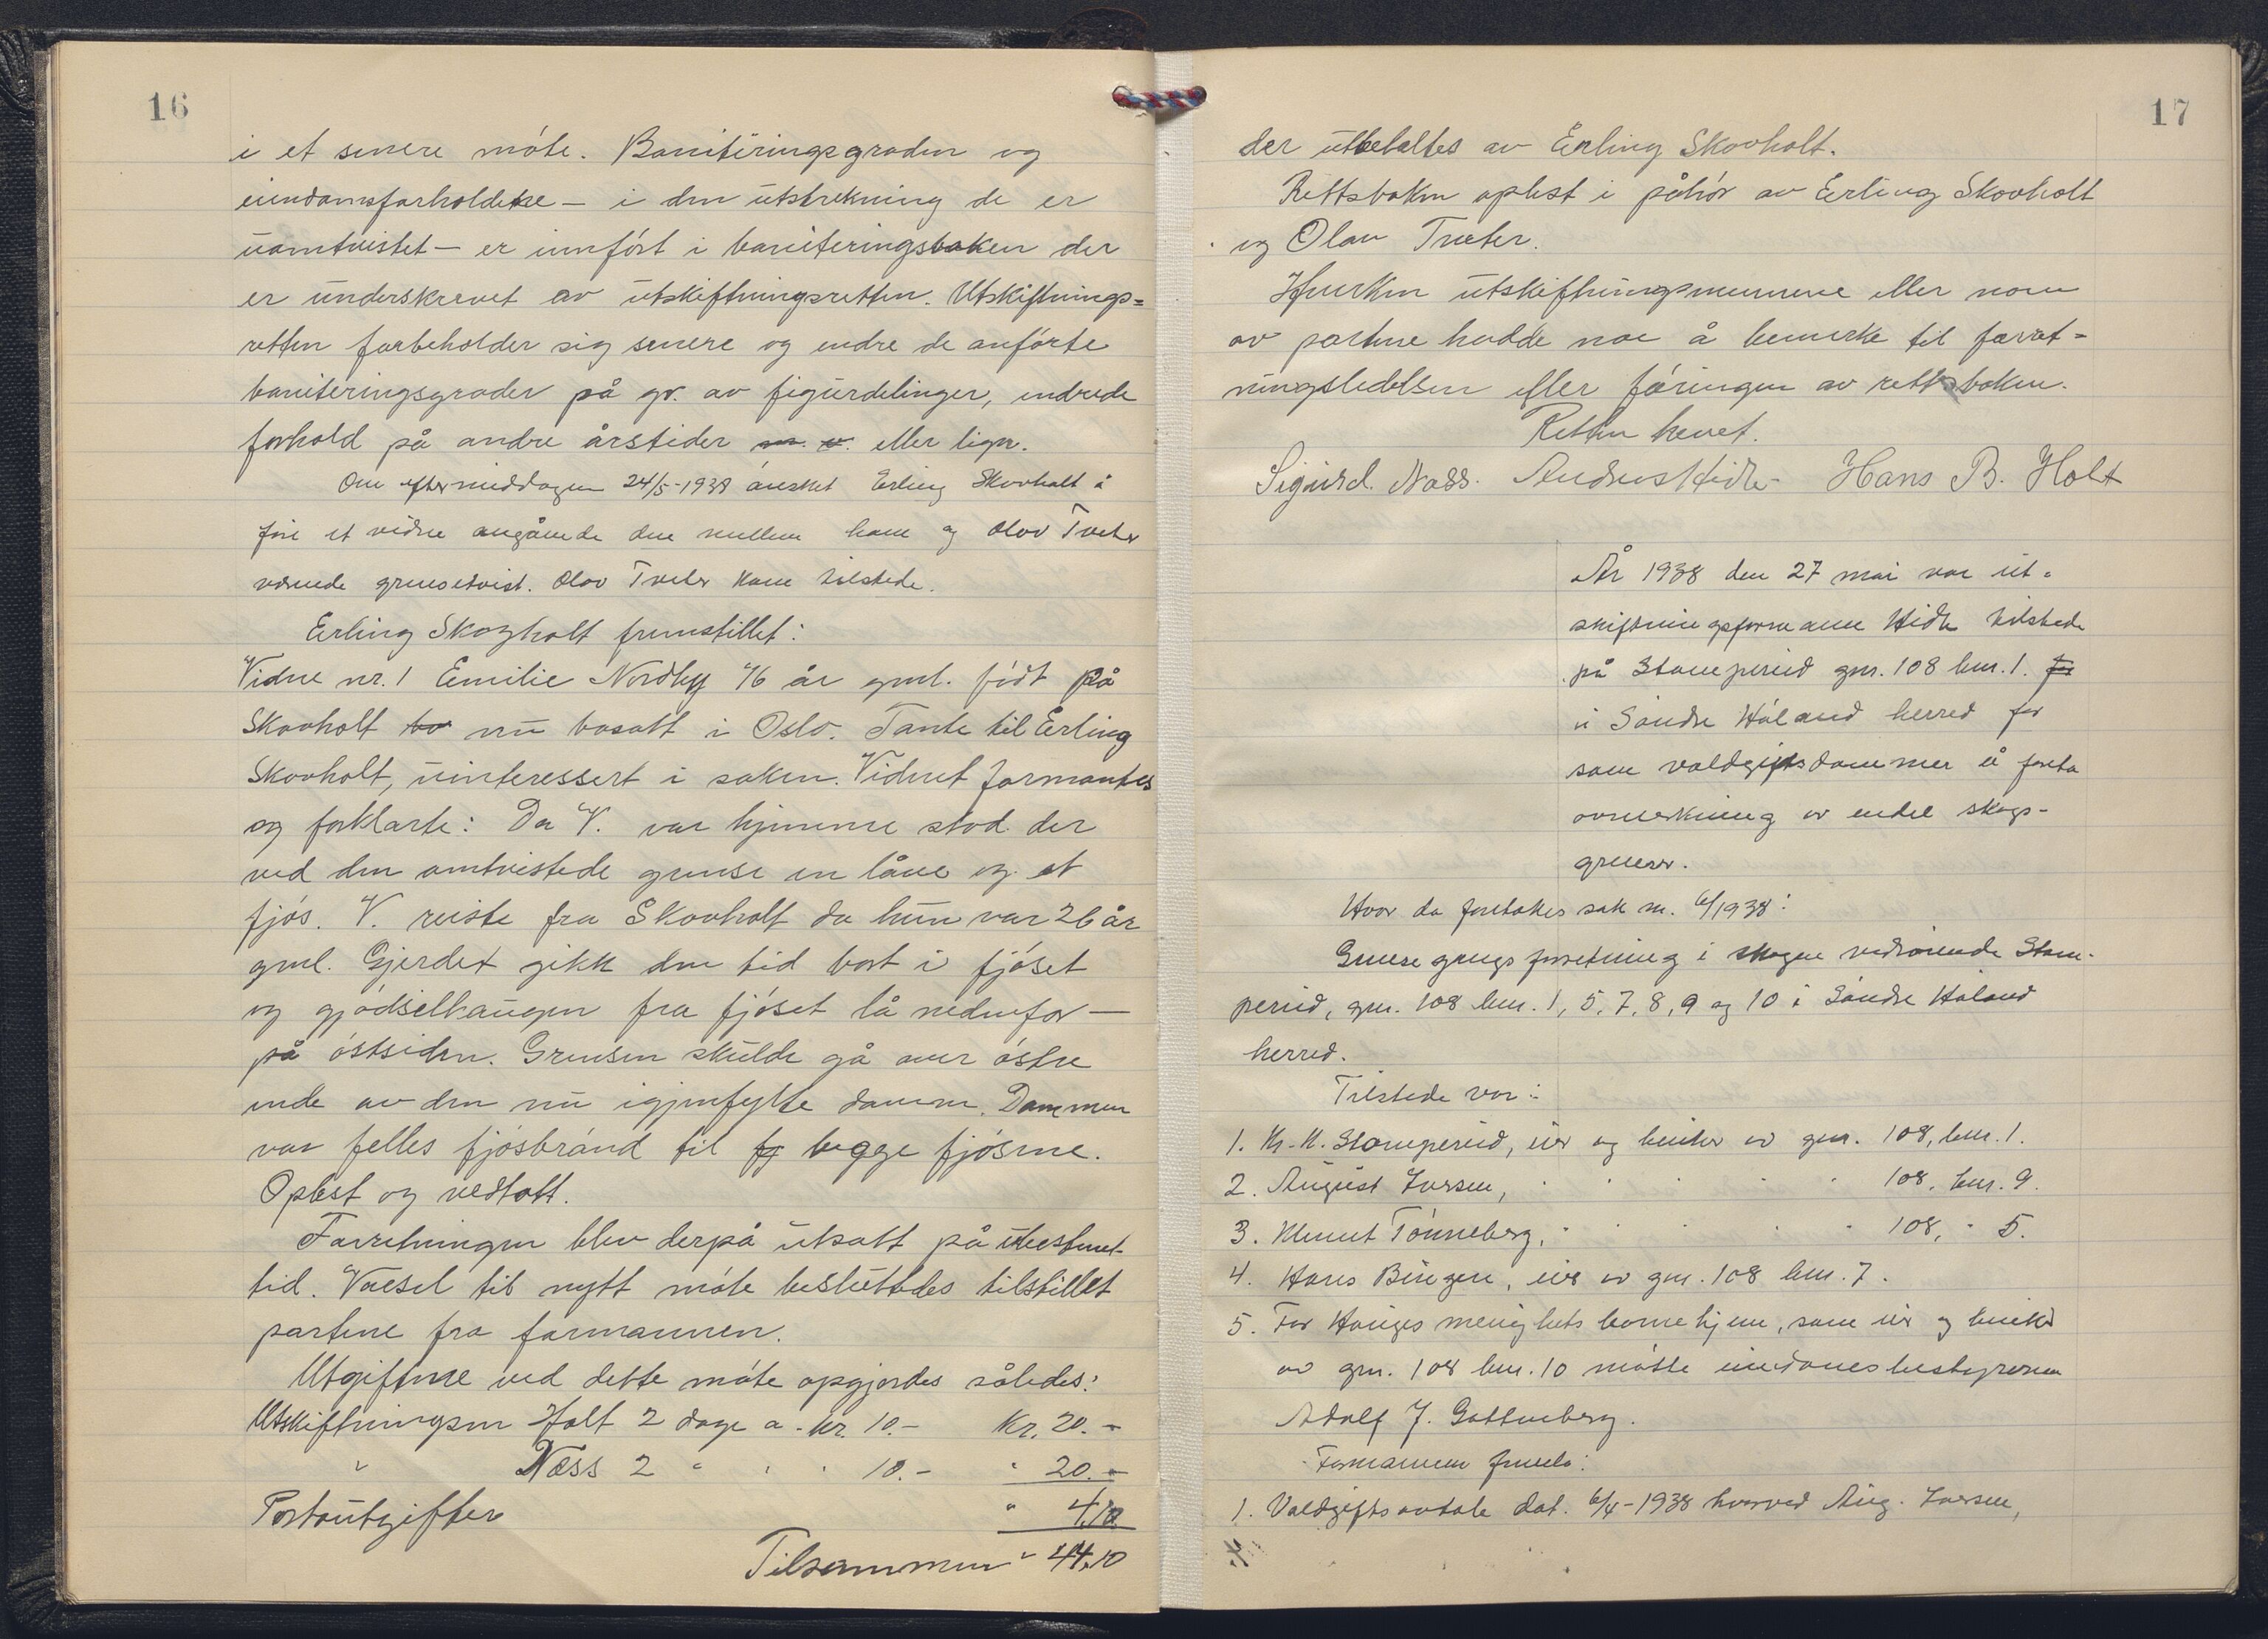 16
i et senere møte. Boniteringsgraden og
eiendomsforholdene – i den utstrekning de er
uomtvistet – er innført i boniteringsboken der
er underskrevet av utskiftningsretten. Utskiftnings=
retten forbeholder sig senere og endre de anførte
boniteringsgrader på gr. av figurdelinger, endrede
forhold på andre årstider m. v. eller lign.
Om eftermiddagen 24/5-1938 ønsket Erling Skovholt å
føre et vidne angående den mellem ham og Olav Tveter
værende grensetvist. Olav Tveter kom tilstede.
Erling Skogholt fremstillet:
Vidne nr. 1 Emilie Nordby 76 år gml. født på
Skovholt bo nu bosatt i Oslo. Tante til Erling
Skovholt, uinteressert i saken. Vidnet formantes
og forklarte: Da V. var hjemme stod der
ved den omtvistede grense en låve og et
fjøs. V. reiste fra Skovholt da hun var 26 år
gml. Gjerdet gikk den tid bort i fjøset
og gjødselhaugen fra fjøset lå nedenfor –
på østsiden. Grensen skulde gå over østre
ende av den nu igjenfylte damm. Dammen
var felles fjøsbrønd til fj begge fjøsene.
Oplest og vedtatt.
Forretningen blev derpå utsatt på ubestemt
tid. Varsel til nytt møte besluttedes tilstillet
partene fra formannen.
Utgiftene ved dette møte opgjordes således:
Utskiftningsm Holt 2 dage a kr. 10.– Kr. 20.–
" Næss 2 " " " 10.– " 20.–
Portoutgifter " 4,10
Tilsammen " 44,10
17
der utbetaltes av Erling Skovholt.
Rettsboken oplest i påhør av Erling Skovholt
og Olav Tveter.
Hverken utskiftningsmennene eller noen
av partene hadde noe å bemerke til forret=
ningsledelsen eller føringen av rettsboken.
Retten hevet.
Sigurd Næss. Andreas Hidle Hans B. Holt
År 1938 den 27 mai var ut=
skiftningsformann Hidle tilstede
på Stomperud gnr. 108 bnr. 1. for
i Søndre Høland herred for
som voldgiftsdommer å foreta
opmerkning av endel skogs-
grenser.
Hvor da foretokes sak nr. 6/1938:
Grensegangsforretning i skogen vedrørende Stom-
perud, gnr. 108 bnr. 1, 5, 7, 8, 9 og 10 i Søndre Høland
herred.
Tilstede var:
1. Kr. K. Stomperud, eier og bruker av gnr. 108, bnr. 1.
2. August Iversen, " " " " " 108, bnr. 9.
3. Klemet Tønneberg, " " " " " 108, " 5.
4. Hans Bunger, eier av gnr. 108 bnr. 7.
5. For Hauges menighets barnehjem, som eier og bruker
av gnr. 108 bnr. 10 møtte eiendomsbestyreren
Adolf J. Gottenberg.
Formannen fremla:
1. Voldgiftsavtale dat. 6/4-1938 hvorved Aug. Iversen,